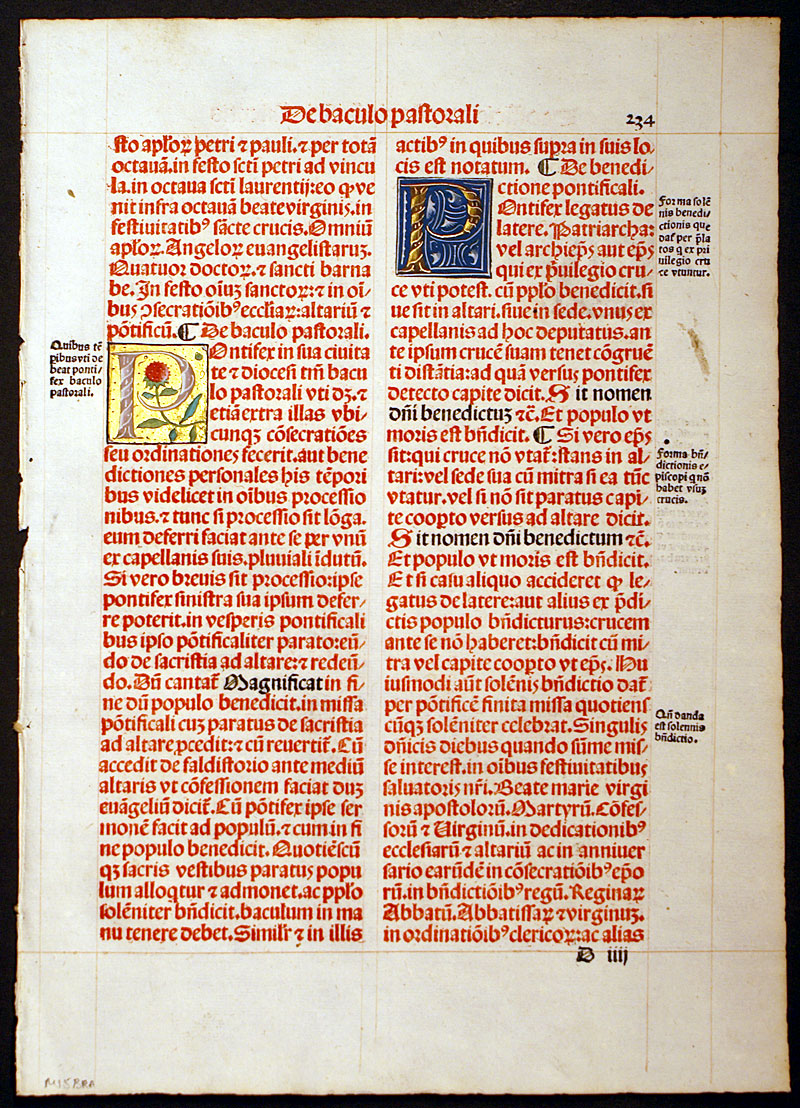 De baculo pastorali
234
sto aploꝝ petri ⁊ pauli. ⁊ per totā
octauā. in festo scti petri ad vincu
la. in octaua scti laurentij: eo ꝙ ve
nit infra octauā beate virginis. in
festiuitatibꝰ sācte crucis. Omniū
aploꝝ. Angeloꝝ euangelistaruȝ.
Quatuor doctoꝝ. ⁊ sancti barna
be. In festo oīuȝ sanctoꝝ: ⁊ in oī-
buȝ ꝯsecratiōibꝰ eccliaꝝ: altariū ⁊
pōtificū. ¶ De baculo pastorali.
POntifex in sua ciuita
te ⁊ diocesi tm̄ bacu
lo pastorali vti dȝ. ⁊
etiā extra illas vbi-
cunqȝ cōsecratiōes
seu ordinationes fecerit. aut bene
dictiones personales his tēpori
bus videlicet in oībus processio
nibus. ⁊ tunc si processio sit lōga.
eum deferri faciat ante se per vnū
ex capellanis suis. pluuiali īdutū.
Si vero breuis sit processio: ipse
pontifex sinistra sua ipsum defer-
re poterit. in vesperis pontificali
bus ipso pōtificaliter parato: eū-
do de sacristia ad altare: ⁊ redeū-
do. Dū cantat̄ Magnificat in fi-
ne dum̄ populo benedicit. in missa
pōtificali cuȝ paratus de sacristia
ad altare ꝓcedit: ⁊ cū reuertit̄. Cū
accedit de faldistorio ante mediū
altaris vt cōfessionem faciat duȝ
euāgeliū dicit̄. Cū pōtifex ipse ser
monē facit ad populū. ⁊ cum in fi
ne populo benedicit. Quotiēscū
qȝ sacris vestibus paratus popu
lum alloqtur ⁊ admonet. ac pplo
solēniter bn̄dicit. baculum in ma
nu tenere debet. Simil'r ⁊ in illis
Quibus tē
pibus vti de
beat ponti-
fex baculo
pastorali.
actibꝰ in quibus supra in suis lo-
cis est notatum. ¶ De benedi-
ctione pontificali.
POntifex legatus de
latere. Patriarcha:
vel archiep̄s aut ep̄s
qui ex p̄uilegio cru-
ce vti potest. cū pplo benedicit. si
ue sit in altari. siue in sede. vnus ex
capellanis ad hoc deputatus. an
te ipsum crucē suam tenet cōgruē
ti distātia: ad quā versus pontifex
detecto capite dicit. Sit nomen
dn̄i benedictuȝ ⁊c̄. Et populo vt
moris est bn̄dicit. ¶ Si vero ep̄s
sit: qui cruce nō vtat̄: stans in al-
tari: vel sede sua cū mitra si ea tūc
vtatur. vel si nō sit paratus capi-
te coopto versus ad altare dicit.
Sit nomen dn̄i benedictum ⁊c̄.
Et populo vt moris est bn̄dicit.
Et si casu aliquo accideret ꝙ le-
gatus de latere: aut alius ex p̄di-
ctis populo bn̄dicturus: crucem
ante se nō haberet: bn̄dicit cū mi-
tra vel capite coopto vt ep̄s. Hu
iusmodi aūt solēnis bn̄dictio dat̄
per pōtificē finita missa quotiens
cūqȝ solēniter celebrat. Singulis
dn̄icis diebus quando sūme mis-
se interest. in oībus festiuitatibus
saluatoris nr̄i. Beate marie virgi
nis apostolorū. Martyrū. Cōfes-
sorū ⁊ Uirginū. in dedicationibꝰ
ecclesiarū ⁊ altariū ac in anniuer
sario earūdē in cōsecratiōibꝰ epo
rū. in bn̄dictiōibꝰ regū. Reginaꝝ
Abbatū. Abbatissaꝝ ⁊ virginuȝ.
in ordinatiōibꝰ clericoꝝ: ac alias
Forma solē
nis benedi-
ctionis que
dat̄ per p̄la
tos q ex pri
uilegio cru
ce vtuntur.
Forma bn̄-
dictionis e-
piscopi q nō
habet vsuȝ
crucis.
Qn̄ danda
est solennis
bn̄dictio.
D iiij